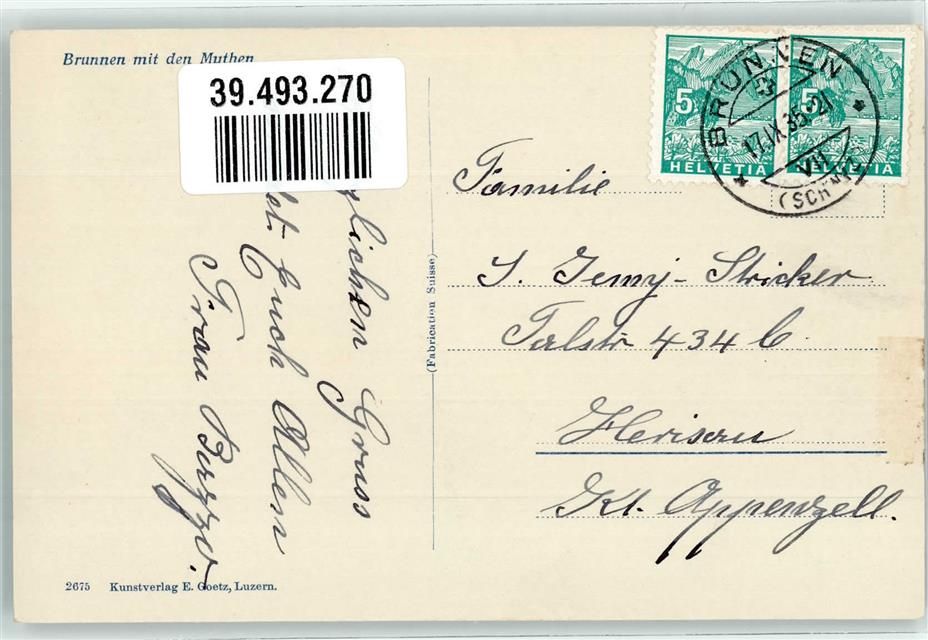 Brunnen mit den Mythen
39.493.270
5
HELVETIA
5
HELVETIA
BRUNNEN
17.IX.35.-21
VII
(SCHWYZ)
Familie
J. Jenny-Stricker
Talstr 434 C
Herisau
Kt. Appenzell.
lichen Gruss
et. Euch Allen
Frau Bozzo.
(Fabrication Suisse)
2675 Kunstverlag E. Goetz, Luzern.